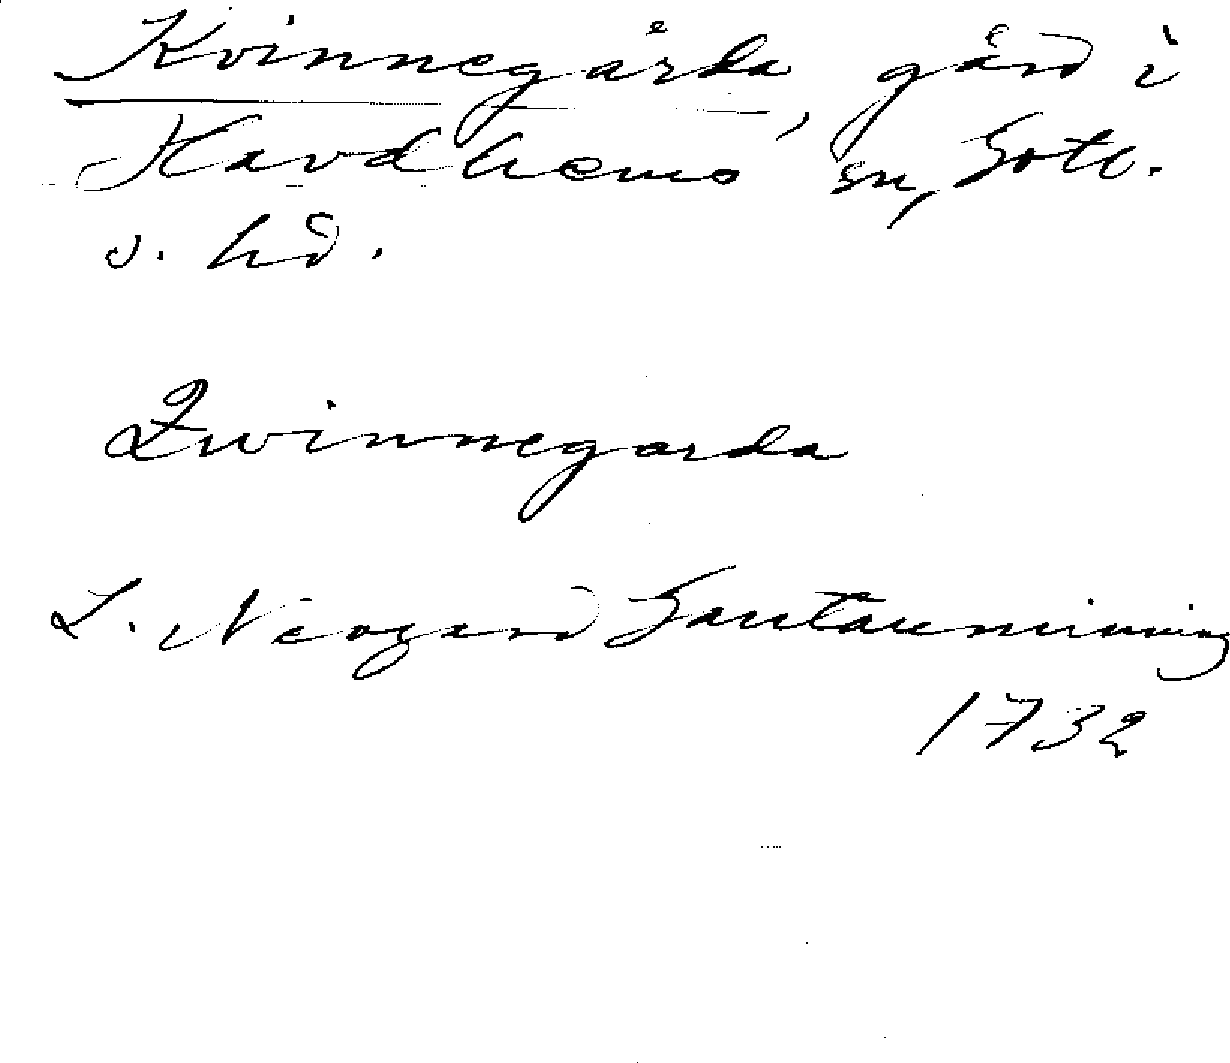 Kvinnegårda, gård i
Havdhems sn, Gotl.
s. hd.
Qwinnegarda
L. Neogard Gautauminning
1732